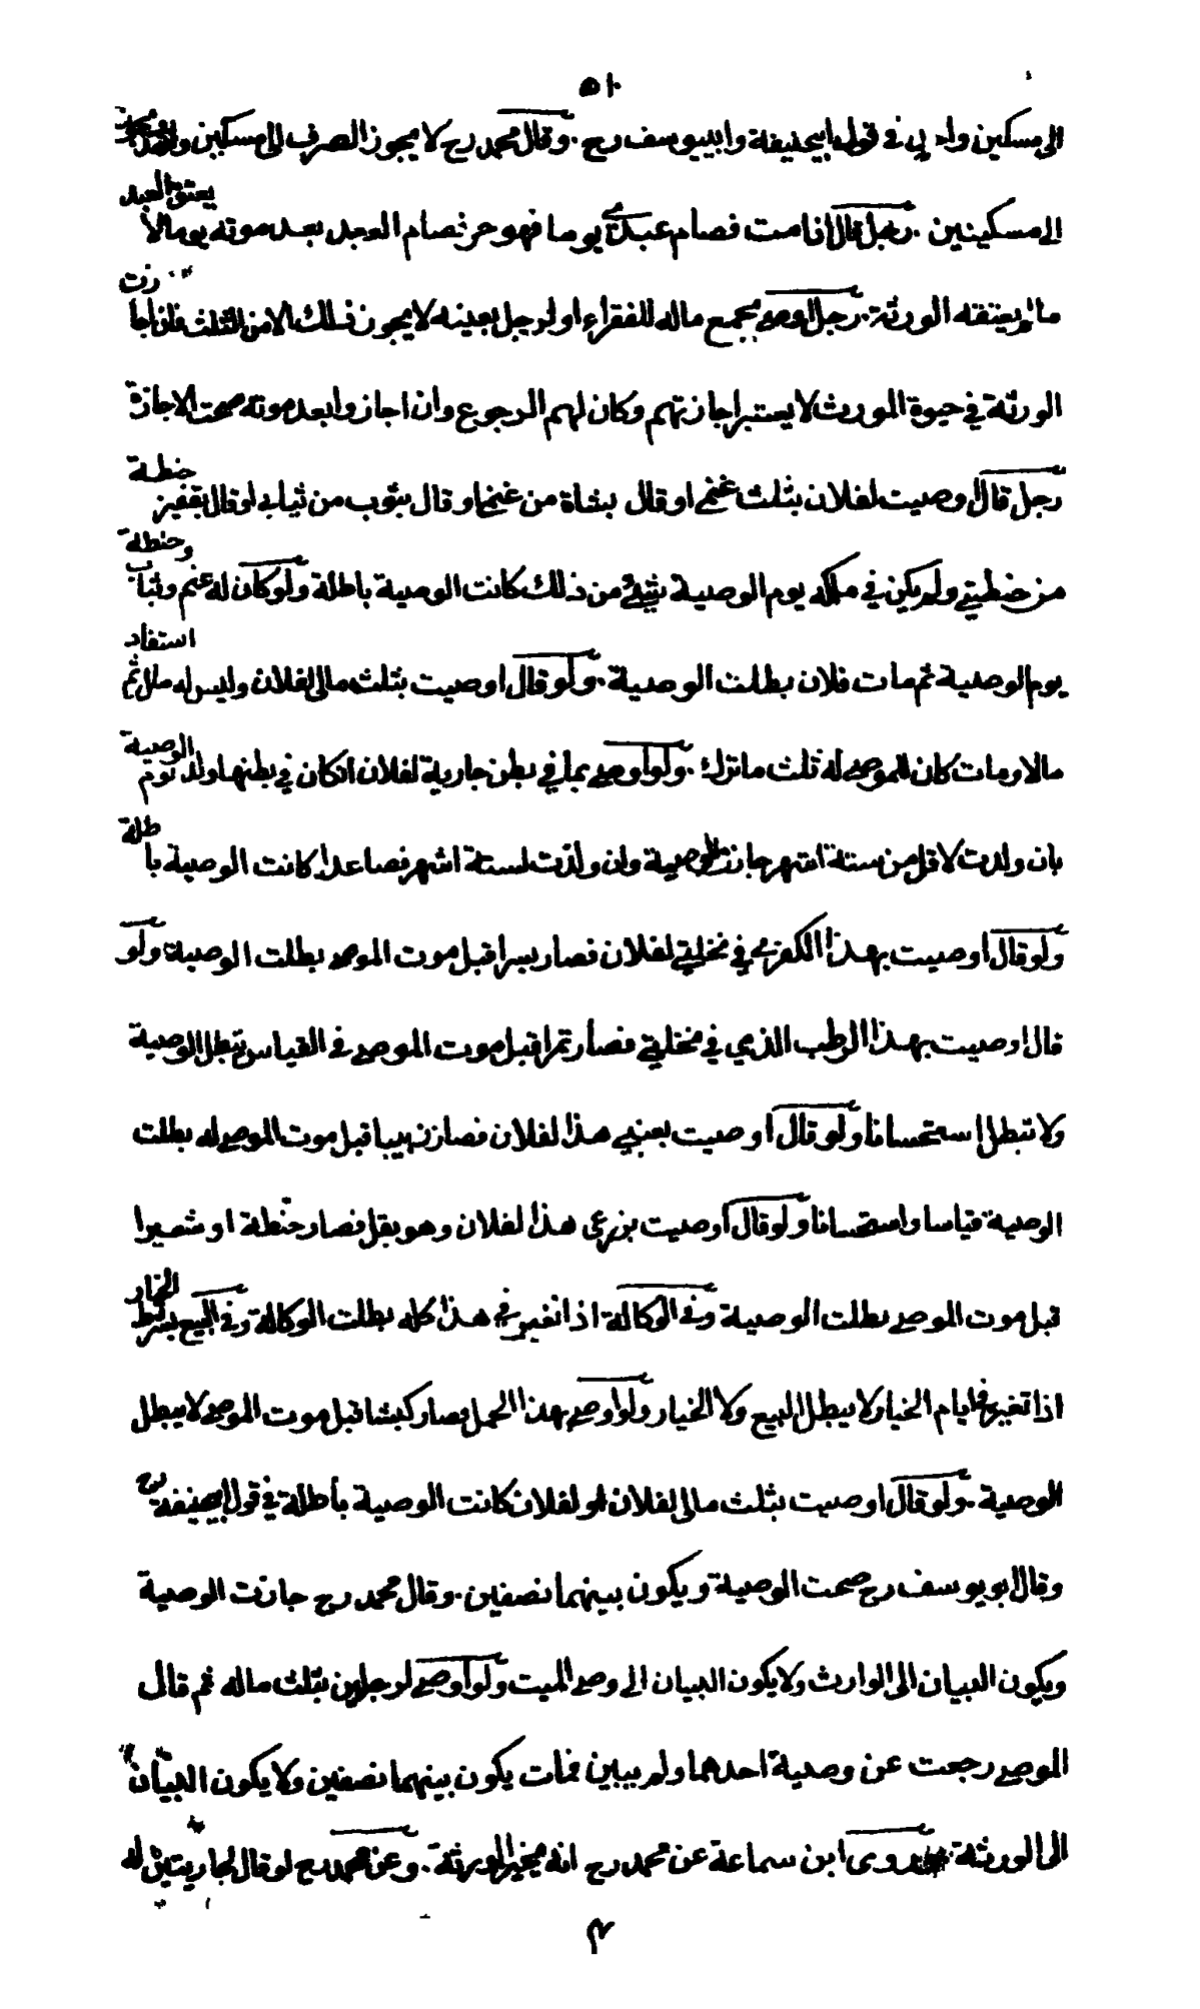 ٥١٠
الى مسكين واحد في قول ابيحنيفة وابييوسف رح . وقال محمد رح لا يجوز الصرف الى مسكين
الى مسكينين . رجل قال انا مت فصام عبدي يوما فهو حر فصام العبد بعد موته يوما لا يعتق العبد
ما لم يعتقه الورثة . رجل اوصى بجمع ماله للفقراء او لرجل بعينه لا يجوز ذلك الا من الثلث فان اجازت
الورثة في حيوة المورث لا يعتبر اجازتهم وكان لهم الرجوع وان اجازوا بعد موته صحت الاجازة
رجل قال اوصيت لفلان بثلث غنمي او قال بشاة من غنمي او قال بثوب من ثيابي او قال بقفيز حنطة
من حنطتي ولم يكن في ملكه يوم الوصية شيئ من ذلك كانت الوصية باطلة ولو كان له غنم وثياب وحنطة
يوم الوصية ثم مات فلان بطلت الوصية . ولو قال اوصيت بثلث مالي لفلان وليس له مال ثم استفاد
مالا ومات كان للموصى له ثلث ما ترك . ولو اوصى بما في بطن جارية لفلان انكان في بطنها ولد يوم الوصية
بان ولدت لاقل من ستة اشهر جازت الوصية وان ولدت لستة اشهر فصاعدا كانت الوصية باطلة
ولو قال اوصيت بهذا الكفرى في نخلتي لفلان فصار بسرا قبل موت الموصى بطلت الوصية ولو
قال اوصيت بهذا الرطب الذي في نخلتي فصار تمرا قبل موت الموصى في القياس تبطل الوصية
ولا تبطل استحسانا ولو قال اوصيت بعنبي هذا لفلان فصار زبيبا قبل موت الموصى له بطلت
الوصية قياسا واستحسانا ولو قال اوصيت بزرعي هذا لفلان وهو بقل فصار حنطة او شعيرا
قبل موت الموصى بطلت الوصية وفي الوكالة اذا تغير في هذا كله بطلت الوكالة وفي البيع بشرط الخيار
اذا تغير في ايام الخيار لا يبطل البيع ولا الخيار ولو اوصى بهذا الحمل فصار كبشا قبل موت الموصى لا يبطل
الوصية . ولو قال اوصيت بثلث مالي لفلان او لفلان كانت الوصية باطلة في قول ابيحنيفة رح
وقال ابو يوسف رح صحت الوصية ويكون بينهما نصفين . وقال محمد رح جازت الوصية
ويكون البيان الى الوارث ولا يكون البيان الى وصى الميت ولو اوصى لرجلين بثلث ماله ثم قال
الموصى رجعت عن وصية احدهما ولم يبين فمات يكون بينهما نصفين ولا يكون البيان
الى الورثة . روى ابن سماعة عن محمد رح انه يخير الورثة . وعن محمد رح لو قال لجاريتين له